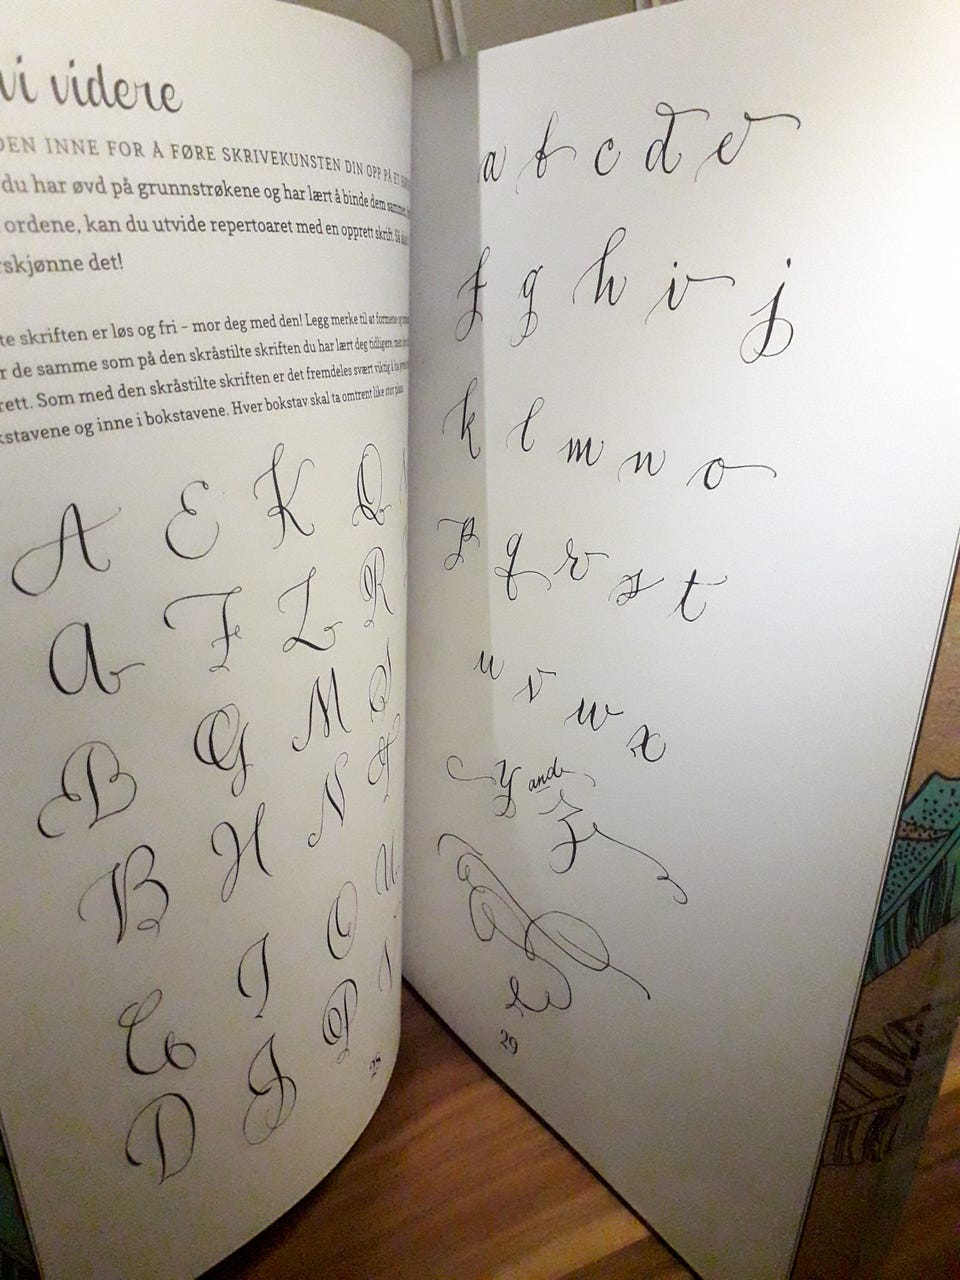 vi videre
DEN INNE FOR Å FØRE SKRIVEKUNSTEN DIN OPP PÅ ET
du har øvd på grunnstrøkene og har lært å binde dem sammen
ordene, kan du utvide repertoaret med en opprett skrift. Så
rskjønne det!
te skriften er løs og fri – mor deg med den! Legg merke til at formene
r de samme som på den skråstilte skriften du har lært deg tidligere, men
rett. Som med den skråstilte skriften er det fremdeles svært viktig å
kstavene og inne i bokstavene. Hver bokstav skal ta omtrent like stor plass.
A E K Q
A F L R
B G M
B H N
C I O U
D J P
28
a b c d e
f g h i j
k l m n o
p q r s t
u v w x
y and
z
&
29